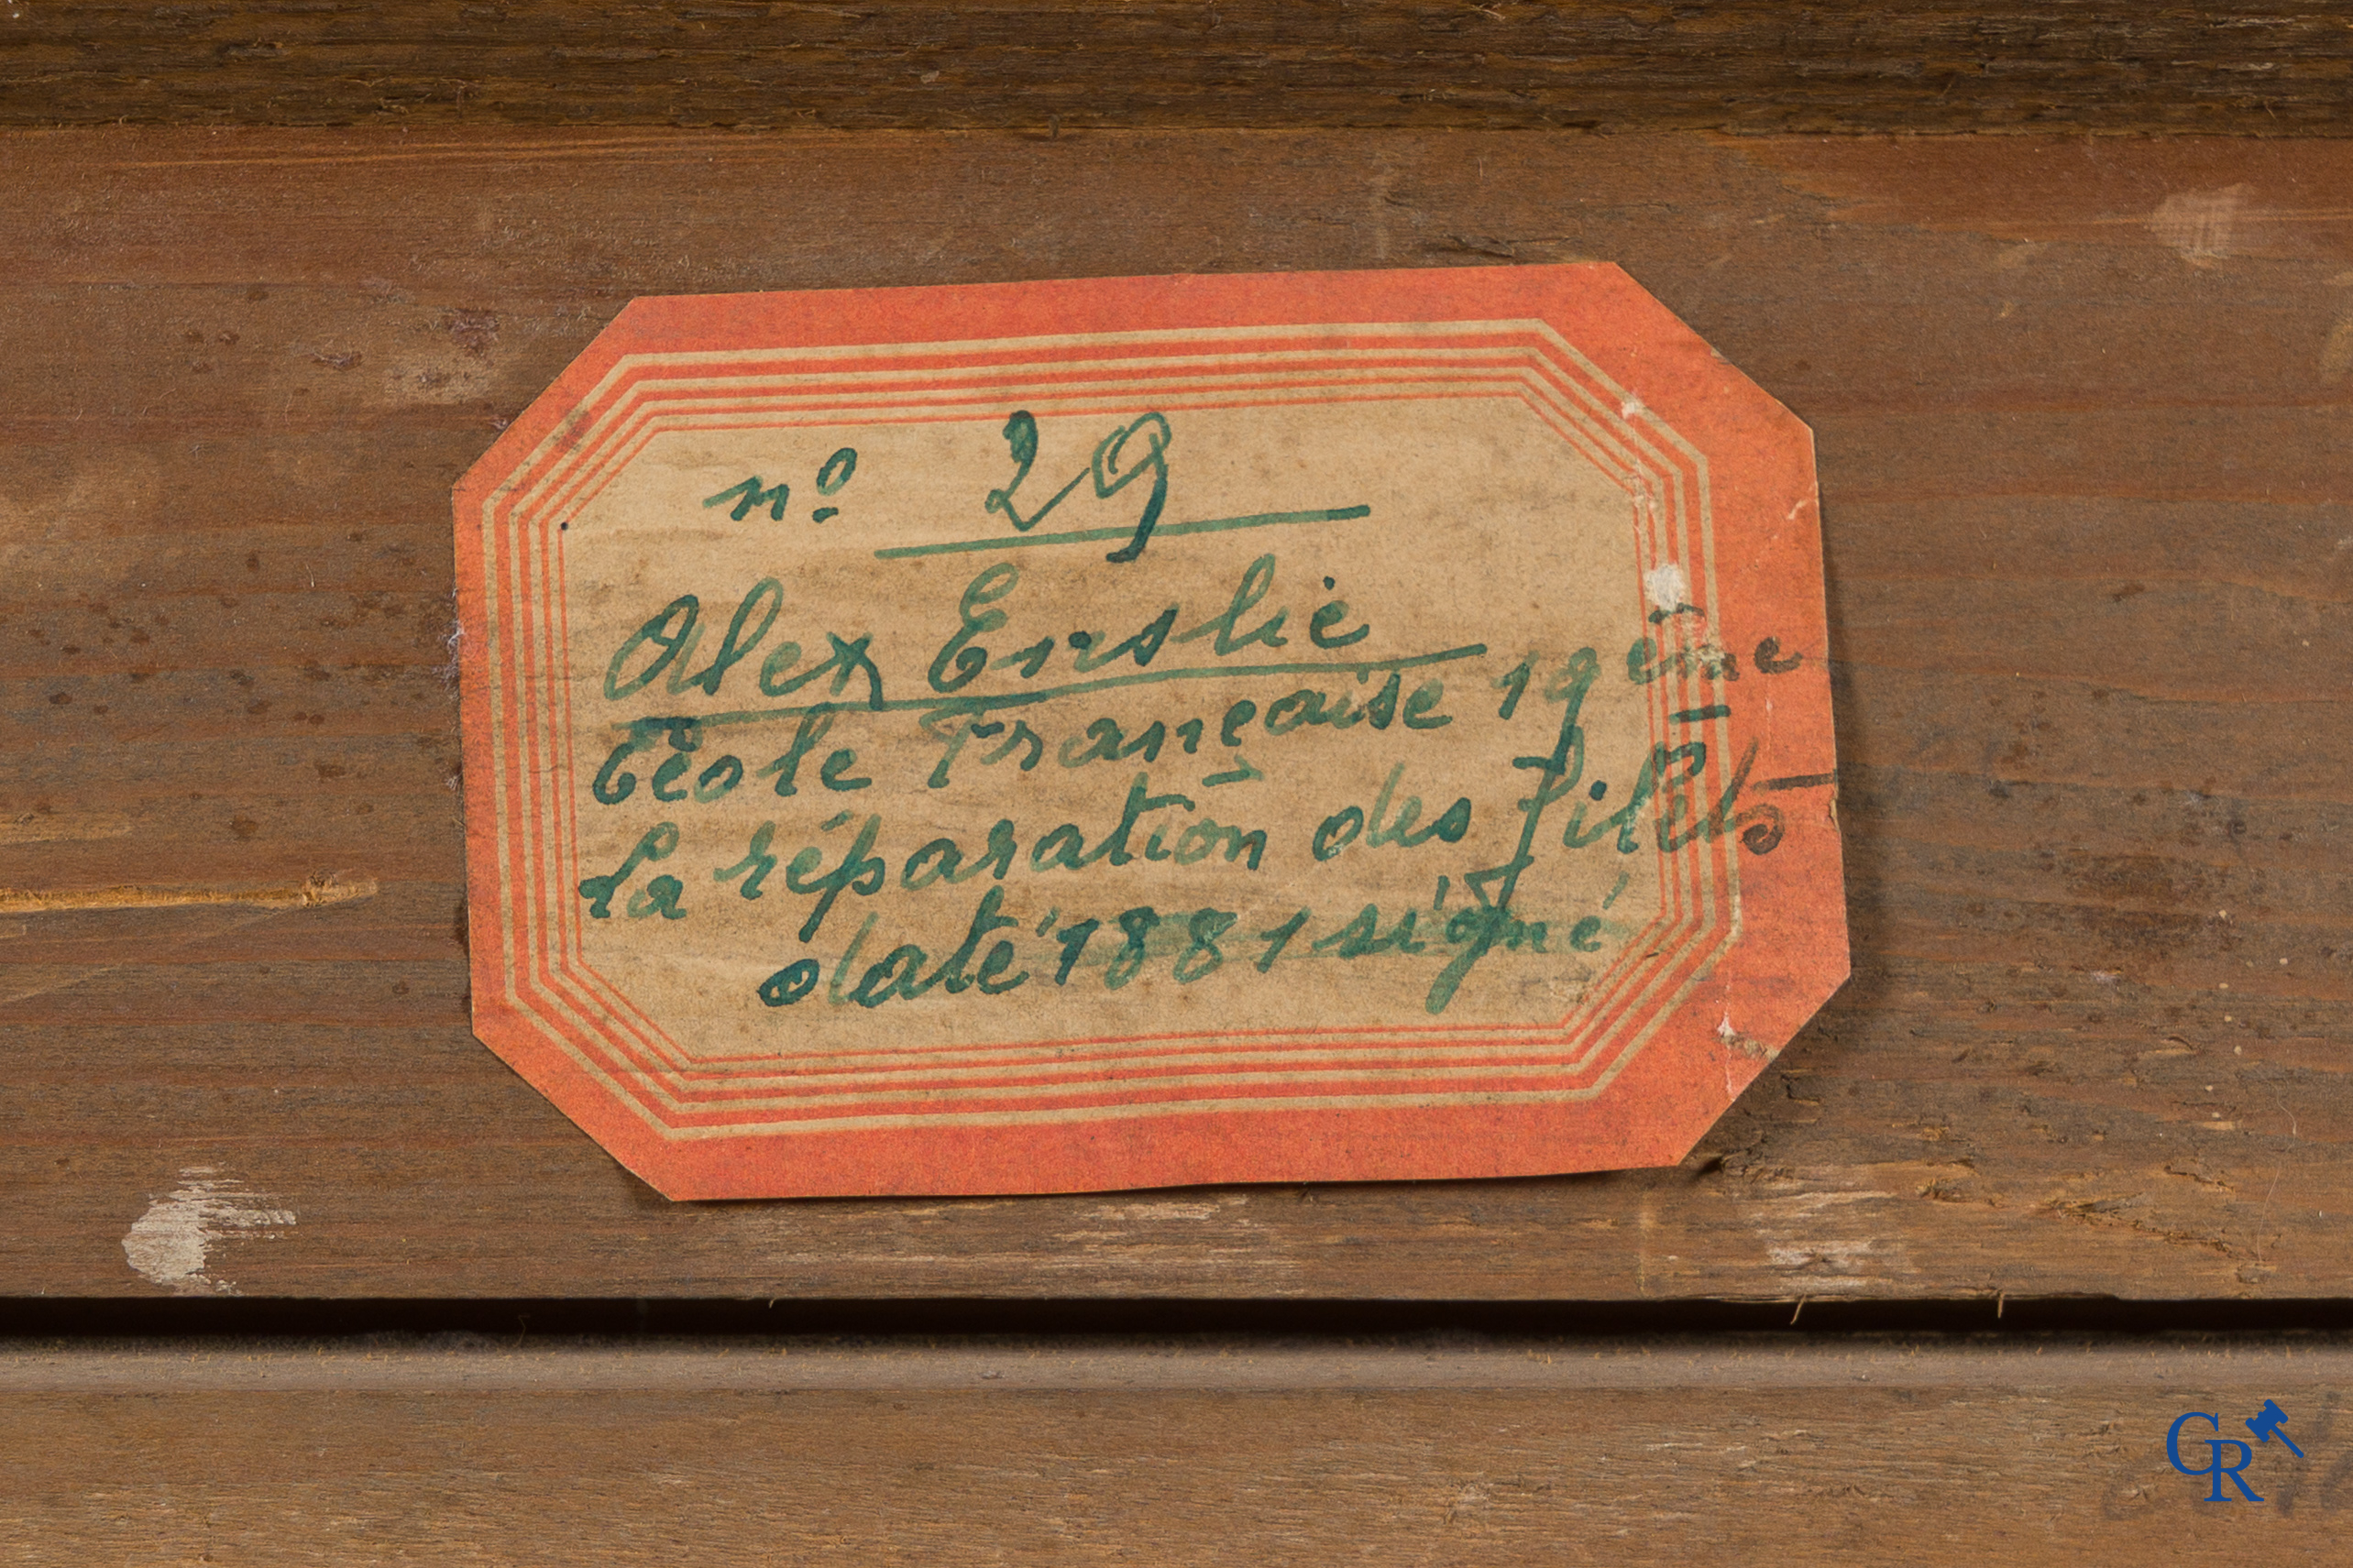 nº 29
Alex Enslie
École Française 19ème
La réparation des filets
daté 1881 signé
CR